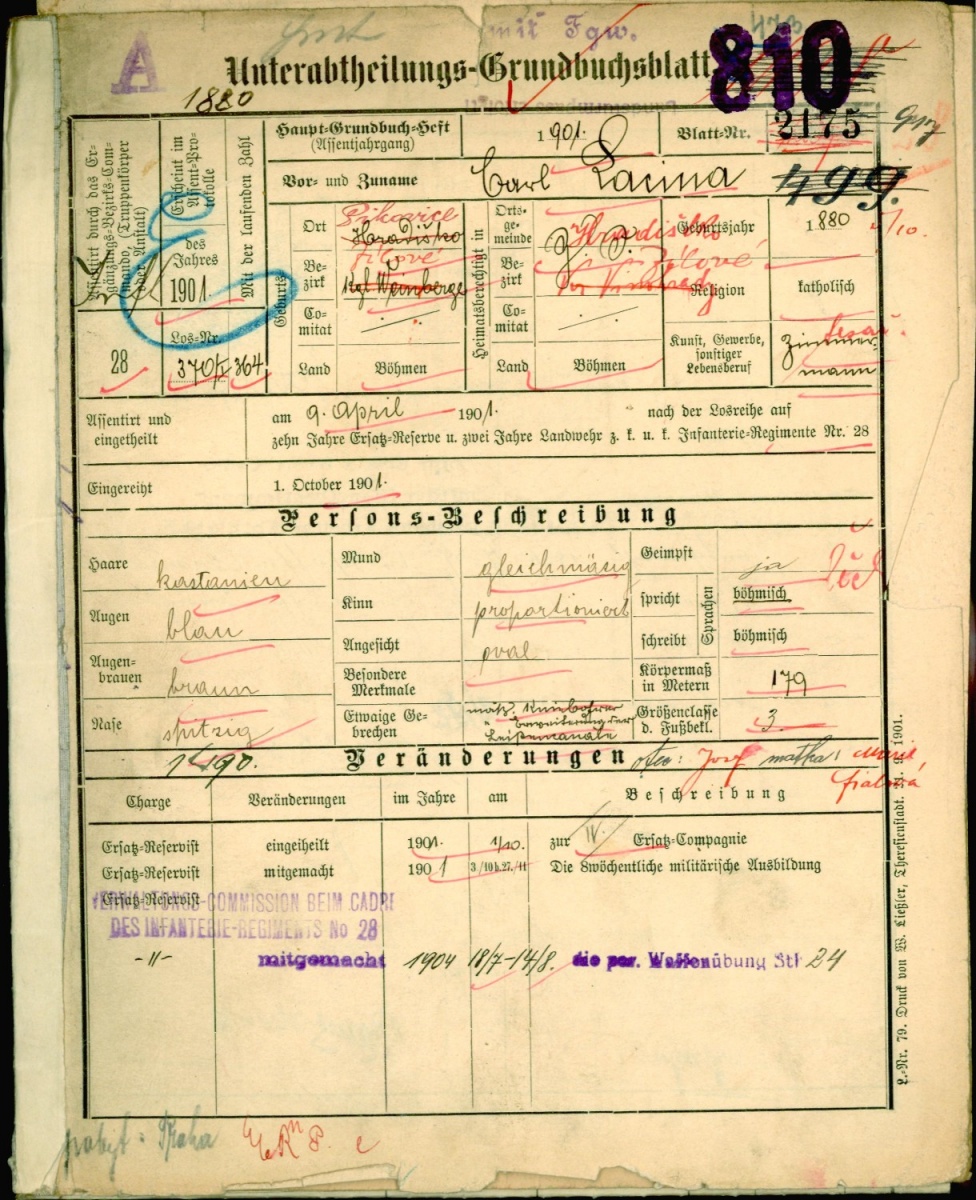 A
mit Fgw.
Unterabtheilungs-Grundbuchsblatt
810
1880
Assentirt durch das Ergänzungs-Bezirks-Commando, (Truppenkörper oder Anstalt)
28
Erscheint im Assent-Protokolle
des Jahres
1901.
Los-Nr.
370/I
Mit der laufenden Zahl
364
Haupt-Grundbuch-Heft
(Assentjahrgang)
1901.
Blatt-Nr.
2175
499.
Vor- und Zuname
Carl Lacina
Geburts
Ort
Pikovice
Hradištko
Bezirk
Jílové
Kgl Weinberge
Comitat
Land
Böhmen
Heimatsberechtigt in
Ortsgemeinde
Hradištko
Bezirk
Jílové
Comitat
Land
Böhmen
Geburtsjahr
1880
4/10.
Religion
katholisch
Kunst, Gewerbe, sonstiger Lebensberuf
tesař.
Zimmermann
Assentirt und eingetheilt
am 9. April 1901. nach der Losreihe auf
zehn Jahre Ersatz-Reserve u. zwei Jahre Landwehr z. k. u. k. Infanterie-Regimente Nr. 28
Eingereiht
1. October 1901.
Persons-Beschreibung
Haare
kastanien
Augen
blau
Augenbrauen
braun
Nase
spitzig
Mund
gleichmäsig
Kinn
proportioniert
Angesicht
oval
Besondere Merkmale
Etwaige Gebrechen
mäß. Kniebohrer
u Erweiterung der
Leistenkanäle
Geimpft
ja
Sprachen
spricht
böhmisch
schreibt
böhmisch
Körpermaß in Metern
179
Größenclasse d. Fußbekl.
3.
Veränderungen
otec: Josef matka: Marie
Fialová
Charge
Veränderungen
im Jahre
am
Beschreibung
Ersatz-Reservist eingetheilt 1901. 1/10. zur IV. Ersatz-Compagnie
Ersatz-Reservist mitgemacht 1901 3/10 b. 27./11 Die 8wöchentliche militärische Ausbildung
Ersatz-Reservist
VERWALTUNGS-COMMISSION BEIM CADRE
DES INFANTERIE-REGIMENTS No 28
-"- mitgemacht 1904 18/7-14/8. die per. Waffenübung Stk 24
L.-Nr. 79. Druck von W. Ließler, Theresienstadt. 1901.
pobyt: Praha